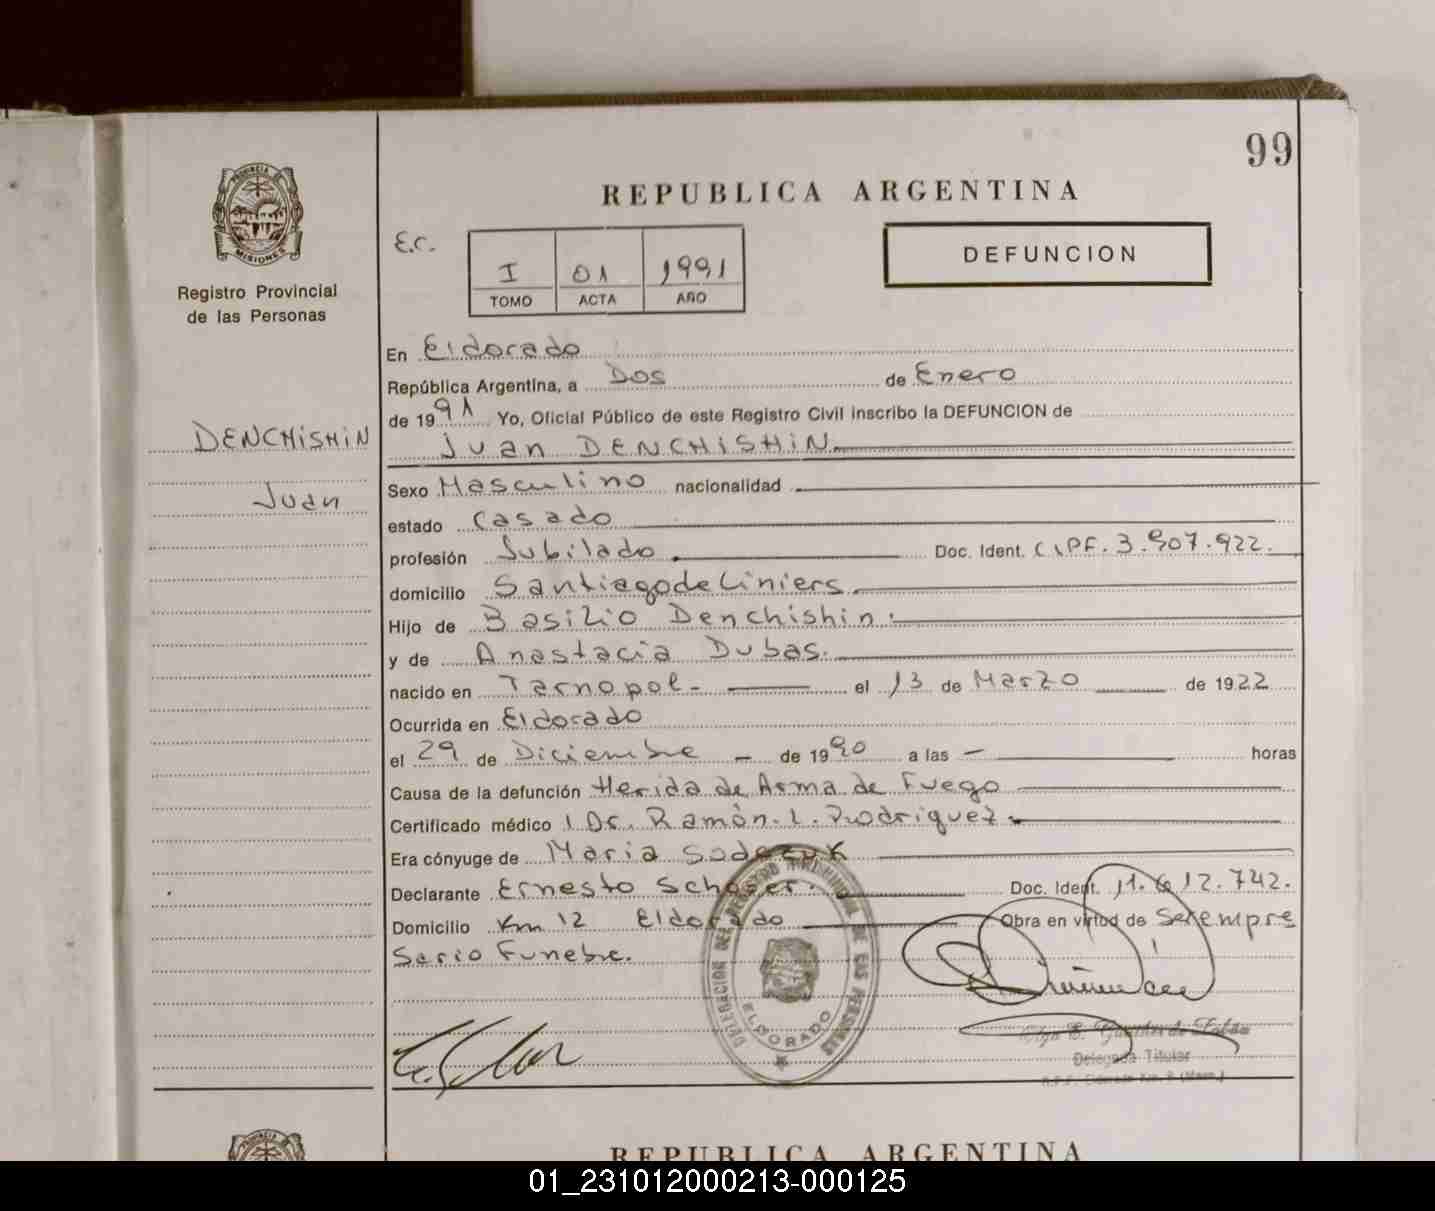 99
PROVINCIA DE
MISIONES
Registro Provincial
de las Personas
REPUBLICA ARGENTINA
E.C.
I 01 1991
TOMO ACTA AÑO
DEFUNCION
DENCHiSHiN
Juan
En Eldorado
República Argentina, a Dos de Enero
de 1991 Yo, Oficial Público de este Registro Civil inscribo la DEFUNCION de
Juan DENCHiSHiN
Sexo Masculino nacionalidad
estado Casado
profesión Jubilado Doc. Ident. C.I.P.F. 3.907.922.
domicilio Santiago de Liniers
Hijo de Basilio Denchishin
y de Anastacia Dubas.
nacido en Tarnopol- el 13 de Marzo de 1922
Ocurrida en Eldorado
el 29 de Diciembre - de 1990 a las - horas
Causa de la defunción Herida de Arma de Fuego
Certificado médico Dr. Ramón. L. Rodriguez
Era cónyuge de Maria
Declarante Ernesto Doc. Ident. 11.612.742.
Domicilio Km 12 Eldorado Obra en virtud de Ser empre
Serio Funebre.
DELEGACION DEL REGISTRO PROVINCIAL DE LAS PERSONAS
ELDORADO
Delegada Titular
REPUBLICA ARGENTINA
01_231012000213-000125